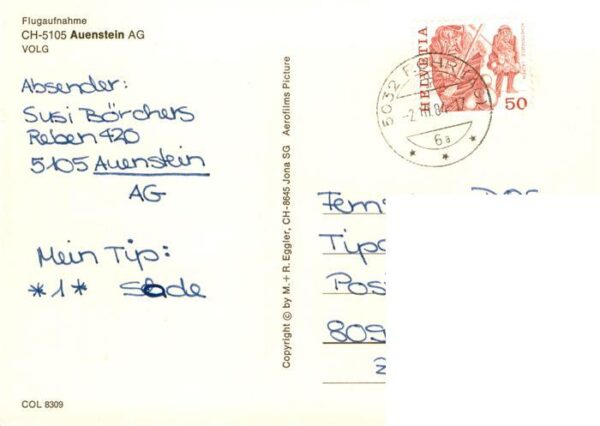 Flugaufnahme
CH-5105 Auenstein AG
VOLG
Absender:
Susi Börchers
Reben 420
5105 Auenstein
AG
Mein Tip:
*1* Slade
COL 8309
Copyright © by M. + R. Eggler, CH-8645 Jona SG Aerofilms Picture
HELVETIA
50
5032
-2.III.84-17
6a
Fern
Tip
Pos
809